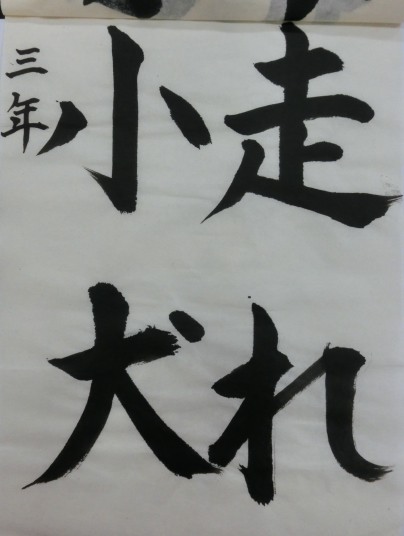 走れ
小犬
三年